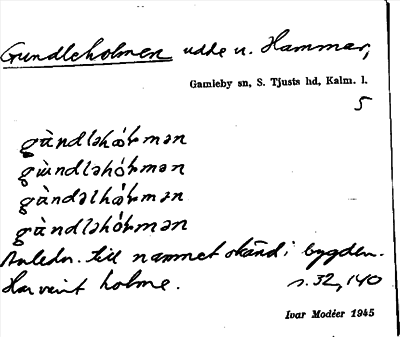 Gundleholmen udde u. Hammar,
Gamleby sn, S. Tjusts hd, Kalm. l.
5
gùndləhó̀lmən
gùndləhó̀lmən
gùndəlhó̀lmən
gùndləhó̀lmən
Anledn. till namnet okänd i bygden.
Har varit holme. s. 32, 140
Ivar Modéer 1945